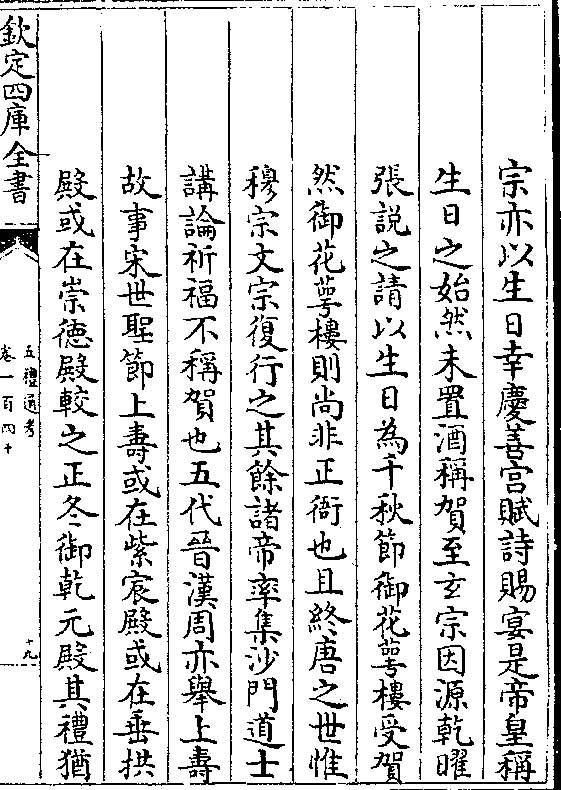 宗亦以生日幸慶善宫賦詩賜宴是帝皇稱
生日之始然未置酒稱賀至玄宗因源乾曜
張説之請以生日為千秋節御花萼樓受賀
然御花萼樓則尚非正衙也且終唐之世惟
穆宗文宗復行之其餘諸帝率集沙門道士
講論祈福不稱賀也五代晉漢周亦舉上壽
故事宋世聖節上壽或在紫宸殿或在垂拱
殿或在崇徳殿較之正冬御乾元殿其禮猶
欽定四庫全書
五禮通考
卷一百四十
十九